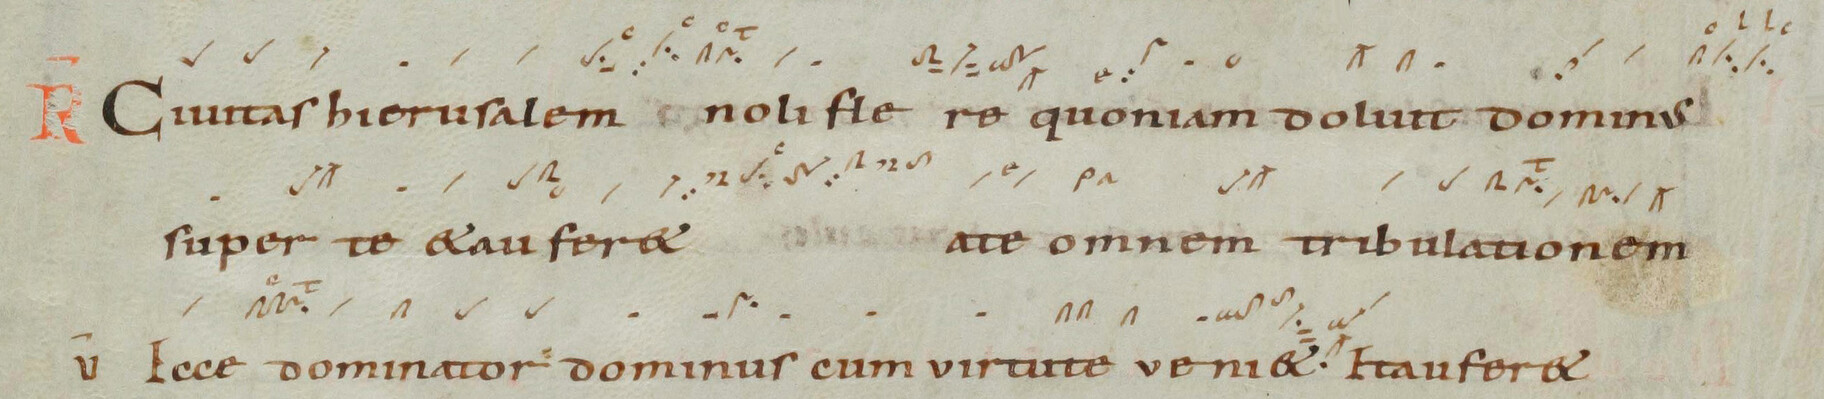 R Ciuitas hierusalem noli flere quoniam doluit dominus
super te & aufer& a te omnem tribulationem
v Ecce dominator dominus cum virtute veni&. Et aufer&